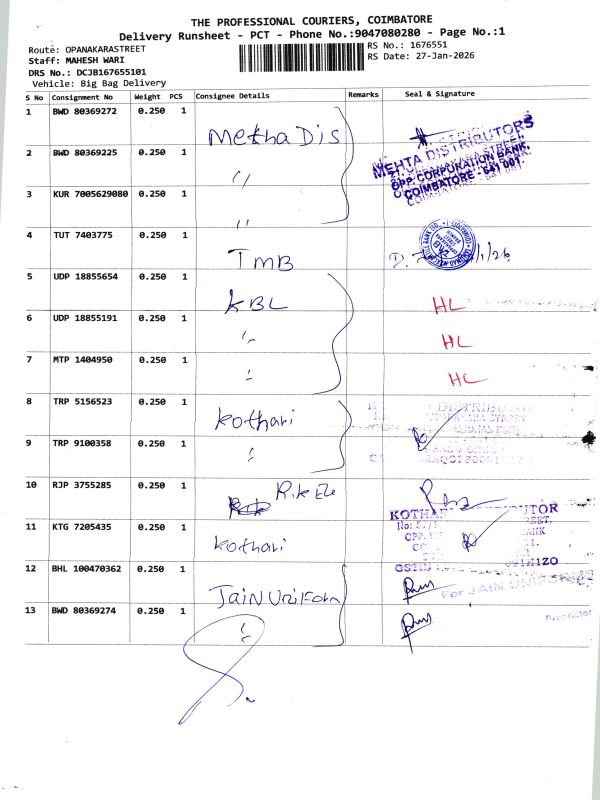 THE PROFESSIONAL COURIERS, COIMBATORE
Delivery Runsheet - PCT - Phone No.:9047080280 - Page No.:1
Route: OPANAKARASTREET
RS No.: 1676551
Staff: MAHESH WARI
RS Date: 27-Jan-2026
DRS No.: DCJB167655101
Vehicle: Big Bag Delivery
S No Consignment No Weight PCS Consignee Details Remarks Seal & Signature
1 BWD 80369272 0.250 1 Metha Dis
MEHTA DISTRIBUTORS
OPP. CORPORATION BANK,
COIMBATORE - 641 001.
2 BWD 80369225 0.250 1 "
3 KUR 7005629080 0.250 1 "
4 TUT 7403775 0.250 1 TMB
5 UDP 18855654 0.250 1 KBL HL
6 UDP 18855191 0.250 1 " HL
7 MTP 1404950 0.250 1 " HL
8 TRP 5156523 0.250 1 Kothari
9 TRP 9100358 0.250 1 "
10 RJP 3755285 0.250 1
11 KTG 7205435 0.250 1 Kothari
12 BHL 100470362 0.250 1 Jain Uniform For JAIN
13 BWD 80369274 0.250 1 " Proprietor